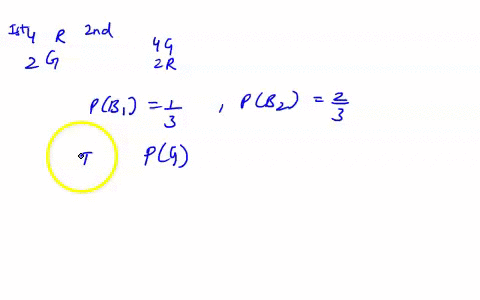 Ist 4 R 2nd 4G
2 G 2R
P(B₁) = 1/3 , P(B₂) = 2/3
P(G)